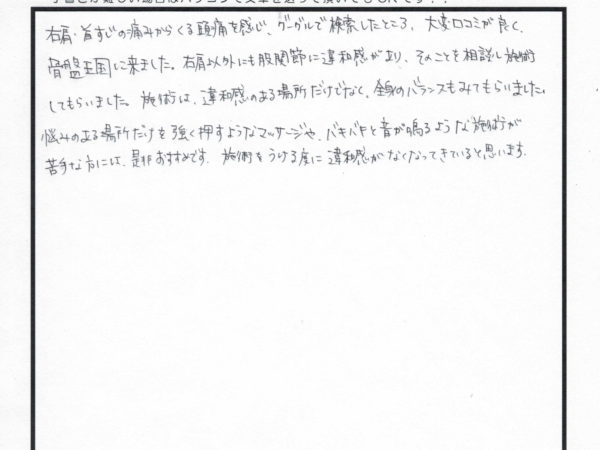 右肩・首すじの痛みからくる頭痛を感じ、グーグルで検索したところ、大変口コミが良く、
骨盤王国に来ました。右肩以外にも股関節に違和感があり、そのことを相談し施術
してもらいました。施術は、違和感のある場所だけでなく、全身のバランスもみてもらいました。
悩みのある場所だけを強く押すようなマッサージや、バキバキと音が鳴るような施術が
苦手な方には、是非おすすめです。施術をうける度に違和感がなくなってきていると思います。